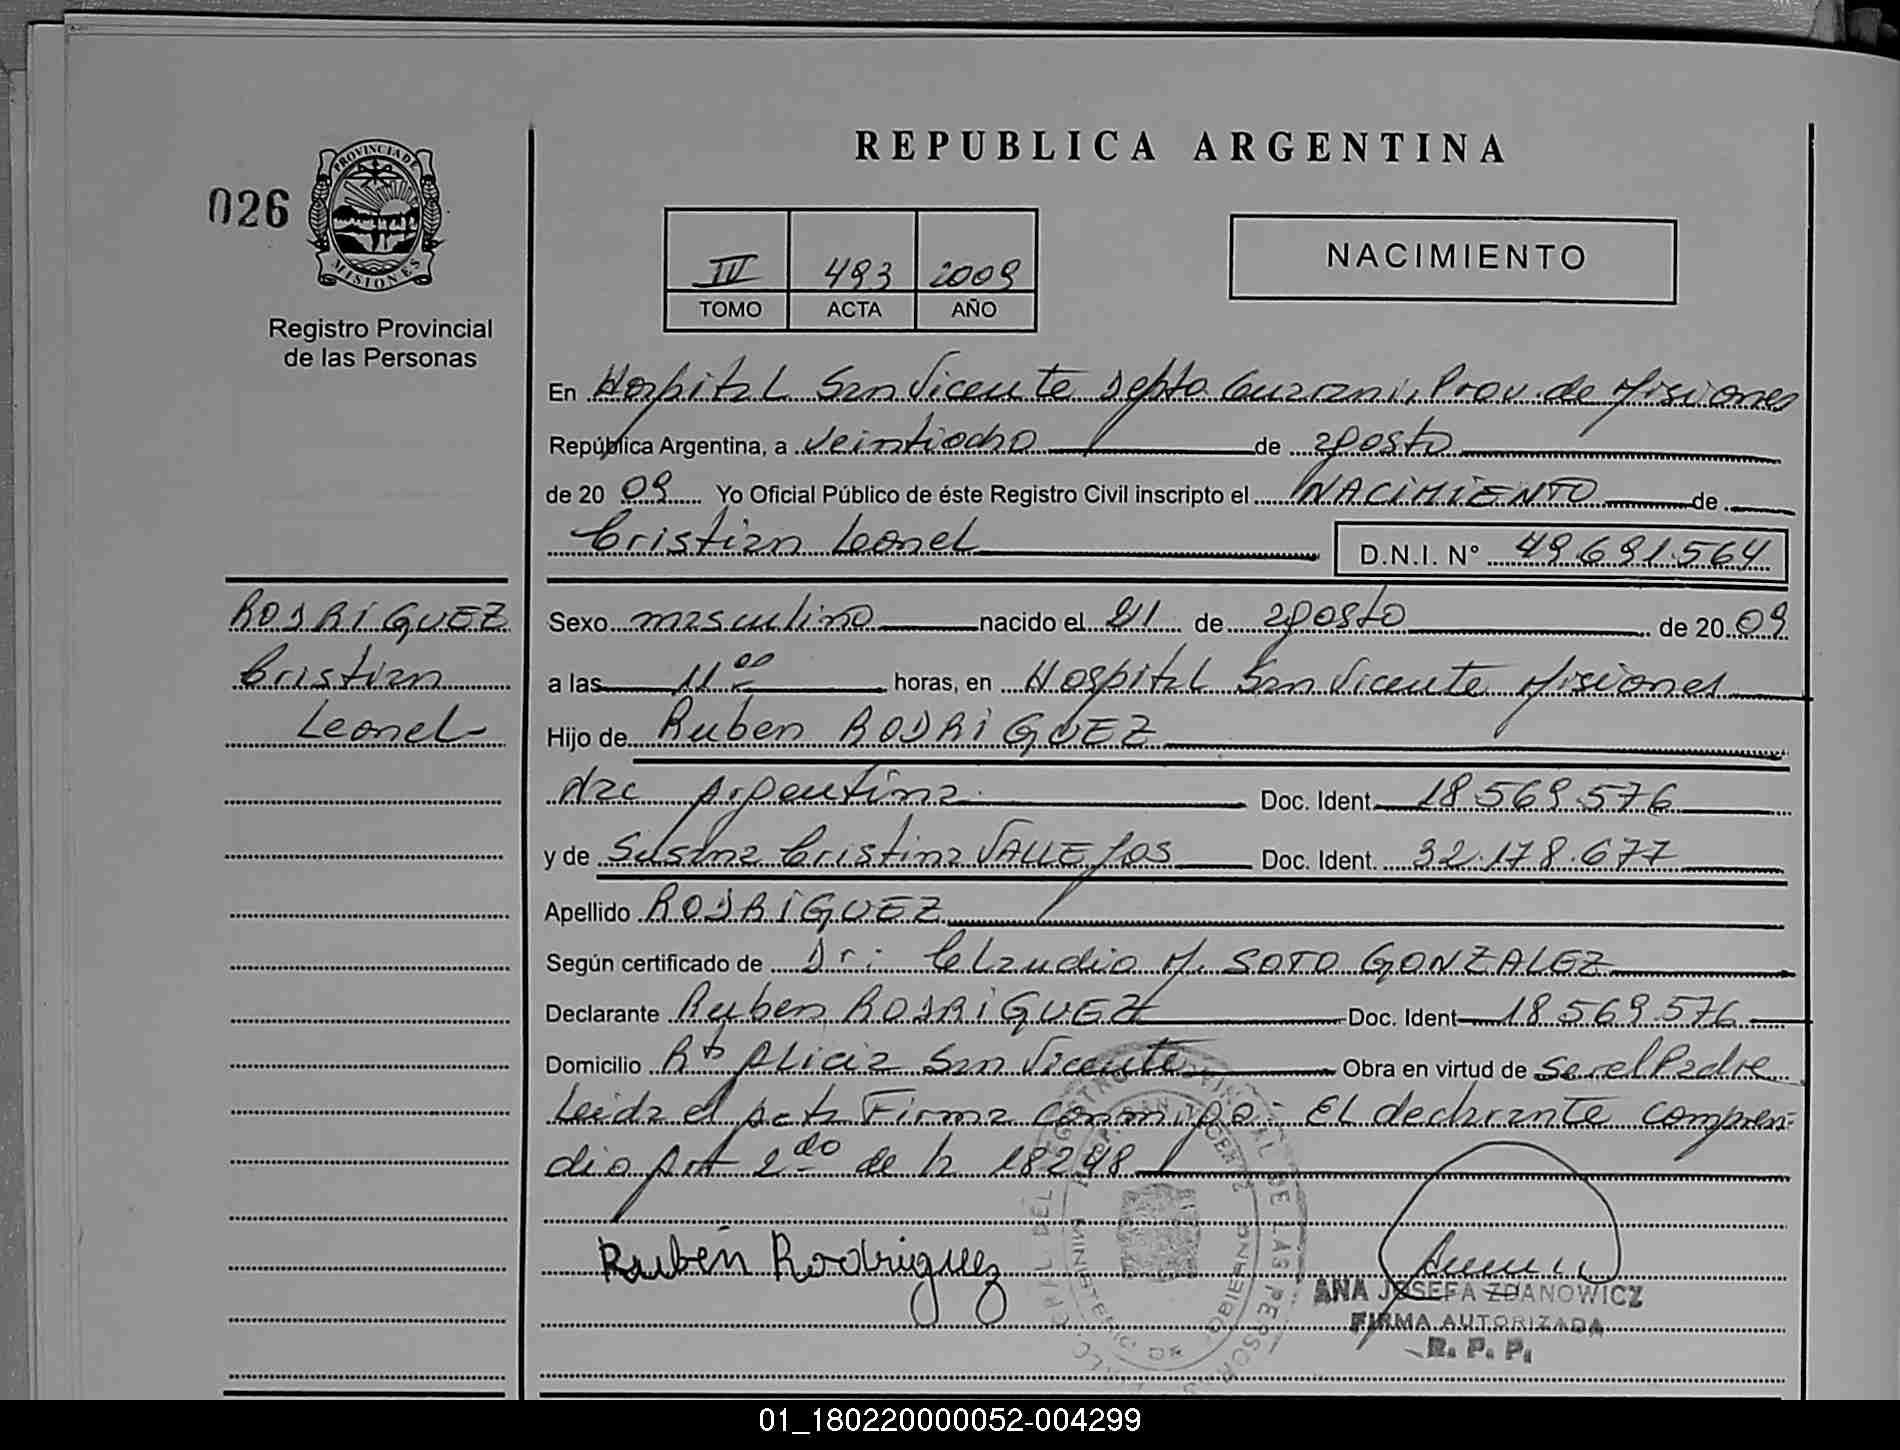 REPUBLICA ARGENTINA
026
PROVINCIA DE
MISIONES
Registro Provincial
de las Personas
III 493 2009
TOMO ACTA AÑO
NACIMIENTO
En Hospital San Vicente Depto Guarani, Prov. de Misiones
República Argentina, a veintiocho de agosto
de 20 09 Yo Oficial Público de éste Registro Civil inscripto el NACIMIENTO de
Cristian Leonel D.N.I. N° 49.691.564
RODRIGUEZ
Cristian
Leonel
Sexo masculino nacido el 21 de agosto de 20 09
a las 11 00 horas, en Hospital San Vicente Misiones
Hijo de Ruben RODRIGUEZ
Nac Argentina Doc. Ident. 18.569.576
y de Susana Cristina VALLEJOS Doc. Ident. 32.178.677
Apellido RODRIGUEZ
Según certificado de Dr: Claudio M. SOTO GONZALEZ
Declarante Ruben RODRIGUEZ Doc. Ident 18.569.576
Domicilio Alicia San Vicente Obra en virtud de ser el Padre
Leida el acta Firma conmigo: El declarante compren-
dio Art 2do de la 18248
Rubén Rodriguez
ANA JOSEFA ZDANOWICZ
FIRMA AUTORIZADA
R. P. P.
01_180220000052-004299